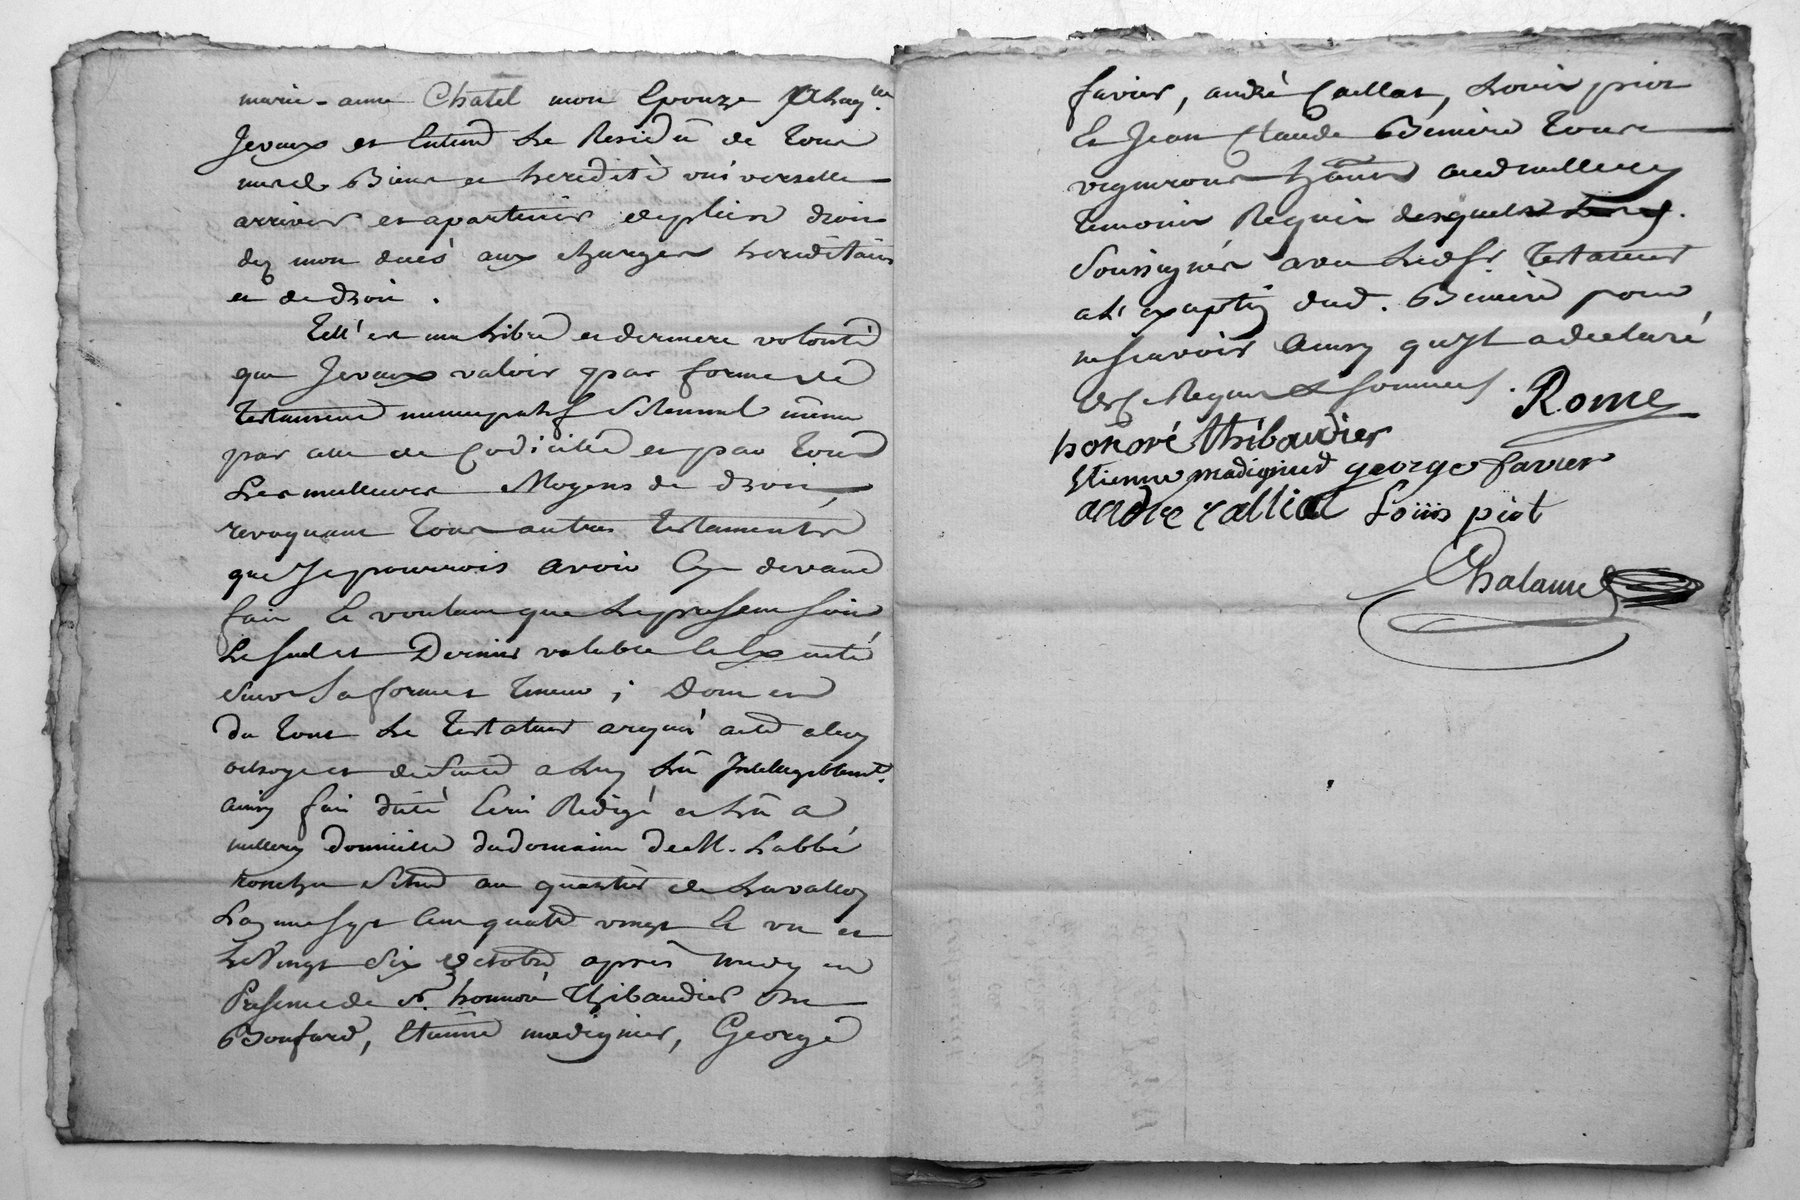 marie-anne Chatel mon Epouze
Jeveux et Entend Le Residu de Tous
mesd. Biens et heredité universelle
arriver et apartenir de plein droit
dez mon decés aux charges hereditaires
et de droit.
Tell'est ma Libre et derniere volonté
que Jeveux valoir par forme de
Testament nuncupatif Solennel même
par celle de Codicille et par Tous
Les meilleures Moyens de droit,
revoquant Tous autres Testaments
que Je pourrois avoir Cy devant
fait Et voulant que Le present soit
Le seul et Dernier valable Et Executé
Suivt Sa forme et Teneur; Dont et
Du Tout Le Testateur a requis acte a luy
octroyé et de Suite a Luy Lû Intelligiblemt.
ainsy fait dicté Ecrit Redigé et Lû a
millery domicille du domaine de M. L'abbé
situé au quartier de Lavalloy
L'an mil sept Cent quatre vingt Et un et
Le Vingt Six octobre après midy en
Presence de sr. honnoré Thibaudier
Boufard, Etienne madignier, George
favier, andré Caillat, Louis piot
Et Jean Claude Benière Tous
vignerons audt millery
Temoins Requis desquels
Soussignés avec Ledt Sr. Testateur
a L'exaption dud. Benière pour
ne sçavoir ainsy qu'il a declaré
de ce Requis et sommés. Rome
honoré thibaudier
Etienne madignier george favier
andre calliat Loüis piot
Chalamel